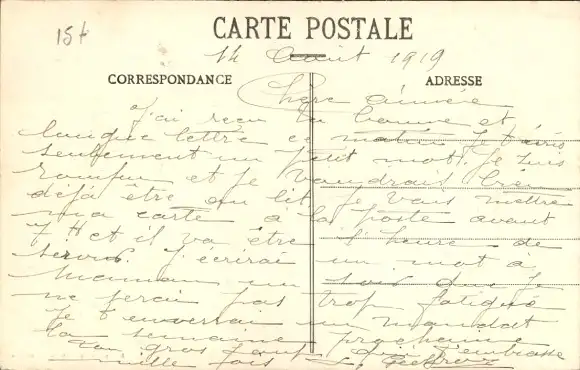 15t
CARTE POSTALE
14 Août 1919
CORRESPONDANCE
ADRESSE
Chère aimée
J'ai reçu ta bonne et
longue lettre ce matin je t'écris
seulement un petit mot. Je suis
rompu et je voudrais bien
déjà être au lit. Je vais mettre
ma carte à la poste avant
7 H et il va être l'heure de
servir. J'écrirai un mot à
Maman un soir que je
ne serai pas trop fatigué
Je t'enverrai un mandat
la semaine prochaine
Ton gros qui t'embrasse
mille fois